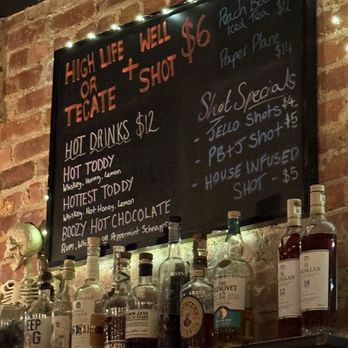 HIGH LIFE
OR
TECATE
+
WELL
SHOT
$6
HOT DRINKS $12
HOT TODDY
Whiskey, Honey, Lemon
HOTTEST TODDY
Whiskey, Hot Honey, Lemon
BOOZY HOT CHOCOLATE
Rum, or Peppermint Schnapps
Peach
Iced Tea $12
Paper Plane
$14
Shot Specials
- JELLO Shots $4
- PB+J Shot $5
- HOUSE INFUSED
SHOT - $5
MACALLAN
12
MACALLAN
18
GLENLIVET
12